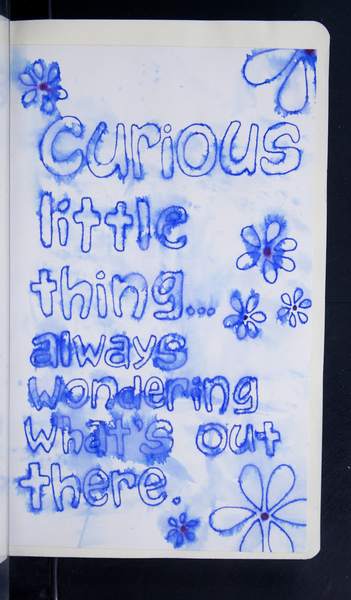 Curious
little
thing...
always
wondering
what's out
there.